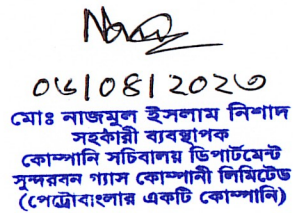 ০৬/০৪/২০২৩
মোঃ নাজমুল ইসলাম নিশাদ
সহকারী ব্যবস্থাপক
কোম্পানি সচিবালয় ডিপার্টমেন্ট
সুন্দরবন গ্যাস কোম্পানী লিমিটেড
(পেট্রোবাংলার একটি কোম্পানি)